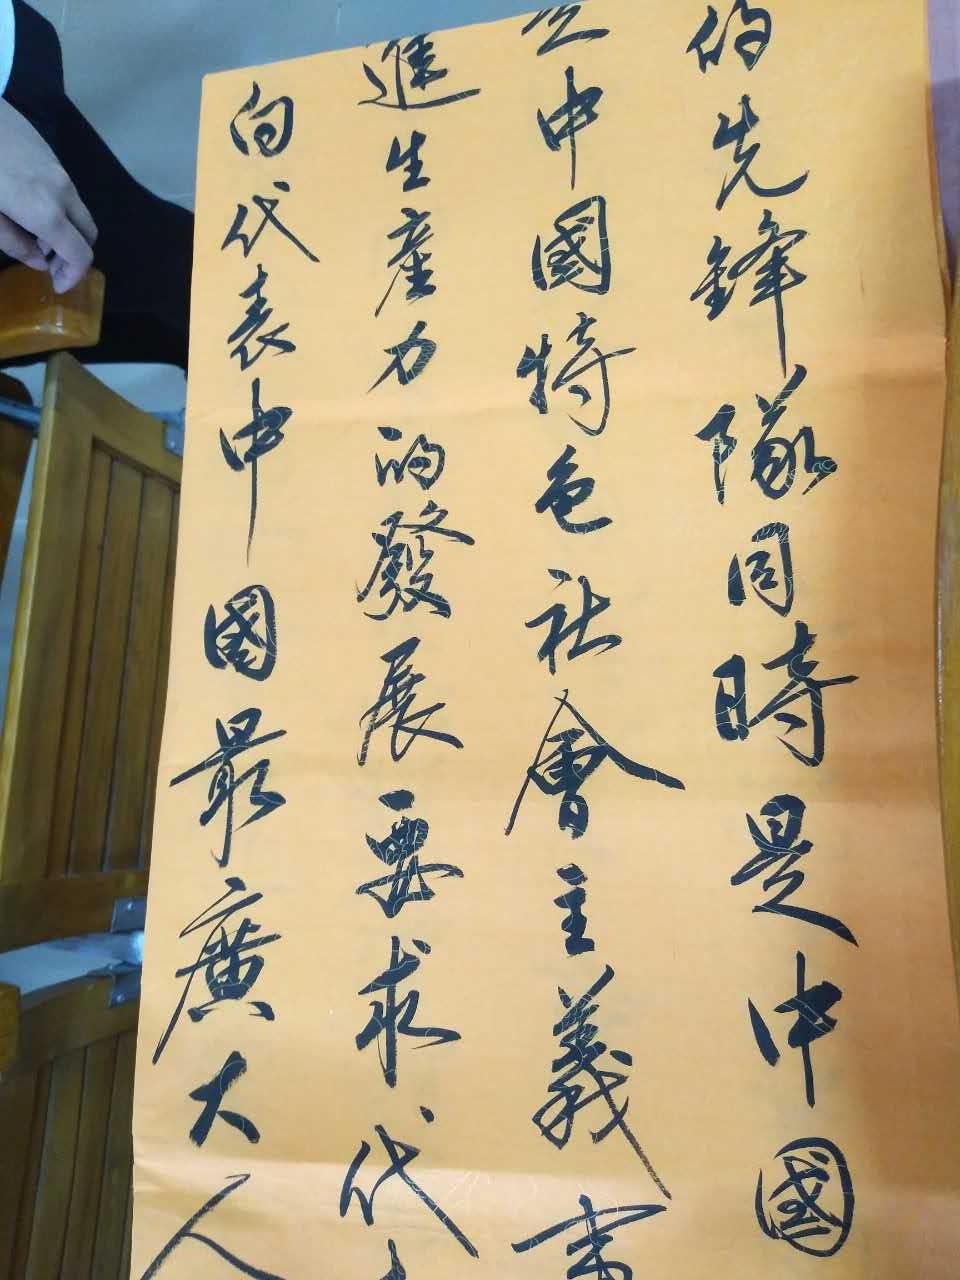 的先鋒隊同時是中國
是中國特色社會主義事
進生產力的發展要求代
向代表中國最廣大人